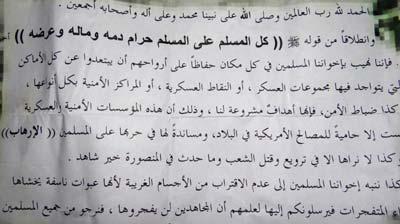 الحمد لله رب العالمين وصلى الله على نبينا محمد وعلى آله وأصحابه أجمعين .
وانطلاقاً من قوله ﷺ (( كل المسلم على المسلم حرام دمه وماله وعرضه )) أجمعين
. فإننا نهيب بإخواننا المسلمين في كل مكان حفاظاً على أرواحهم أن يبتعدوا عن كل الأماكن
التي يتواجد فيها مجموعات العسكر ، أو النقاط العسكرية ، أو المراكز الأمنية بكل أنواعها ،
كذا ضباط الأمن، فإنها أهدافٌ مشروعة لنا ، وذلك أن هذه المؤسسات الأمنية والعسكرية
ست إلا حاميةً للمصالح الأمريكية في البلاد، ومساندةً لها في حربها على المسلمين (( الإرهاب ))
كذا لا نراها إلا في ترويع وقتل الشعب وما حدث في المنصورة خير شاهد .
كذا ننبه إخواننا المسلمين إلى عدم الاقتراب من الأجسام الغريبة لأنها عبوات ناسفة يخشاها
المتفجرات فيرسلونكم إليها لعلمهم أن المجاهدين لن يفجروها ، فنرجو من جميع المسلمين